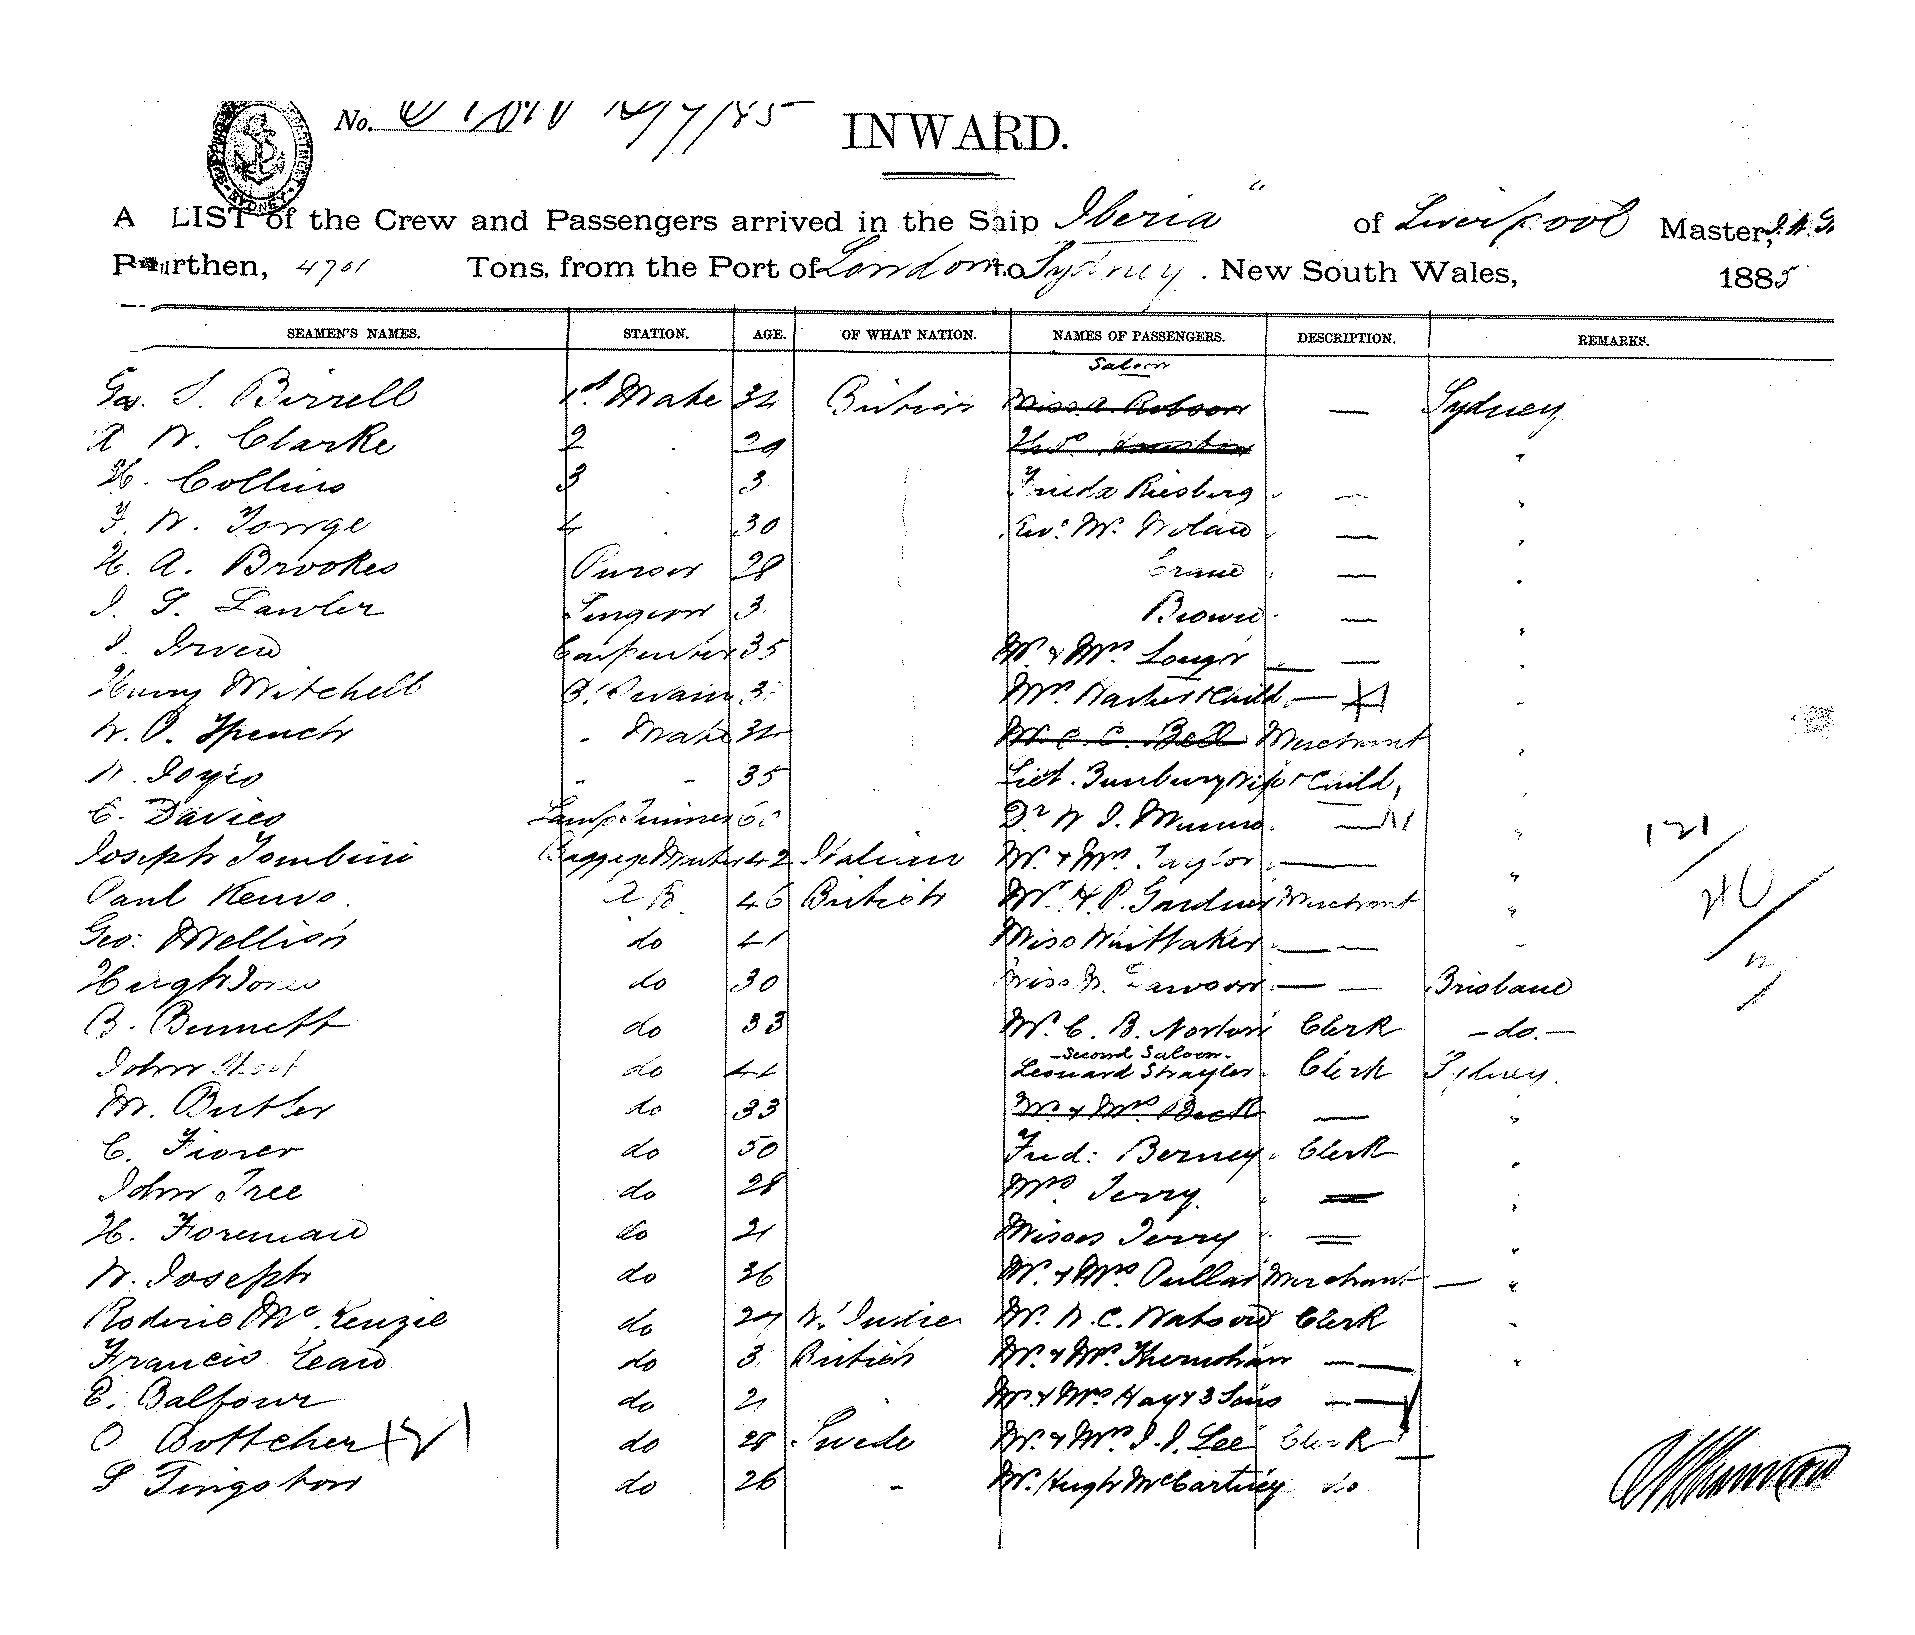 No. 7/85
INWARD.
A LIST of the Crew and Passengers arrived in the Ship Iberia" of Liverpool Master,
Burthen, 4701 Tons, from the Port of London to Sydney. New South Wales, 1885
SEAMEN'S NAMES. STATION. AGE. OF WHAT NATION. NAMES OF PASSENGERS. DESCRIPTION. REMARKS.
Saloon
Birrell 1st Mate 34 British Miss A Robson — Sydney
W. Clarke 2 29 "
H. Collins 3 3 Frieda Riesberg — "
F. W. 4 30 Revd. W. Nolan — "
H. A. Brookes Purser 28 Crane — "
J. S. Lawler Surgeon 3 Brown — "
J. Irven Carpenter 35 Mr & Mrs — "
Harry Mitchell 3 Mrs. & Child — "
W. O. Spench " Mate 34 Mr. C. C. Bell Merchant "
W. " " 35 Liet. Bunbury Wife & Child, "
E. Davies Lamp Trimmer Dr W J. Munro. — "
Joseph Tombini Baggage Master 42 Italian Mr. & Mrs. Taylor — "
Paul A B. 46 British Mr. H. P. Gardner Merchant "
Geo: Mellish do 41 Miss Whittaker — — "
Hugh Jones do 30 Miss Lawson — — Brisbane
B. Bennett do 33 Mr. C. B. Norton Clerk — do. —
Second Saloon.
John do 44 Leonard Strayler Clerk Sydney.
M. Butler do 33 Mr & Mrs Beck — "
C. do 50 Fred: Berney Clerk "
John Tree do 28 Mrs Terry. "
H. Foreman do 21 Misses Terry "
W. Joseph do 36 Mr. & Mrs Pullar Merchant — "
Roderic McKenzie do 27 W. Indies Mr. W. C. Watson Clerk "
Francis do 3 British Mr. & Mrs. — "
E. Balfour do 2 Mr. & Mrs Hay & 3 Sons —
O Bottcher do 28 Swede Mr. & Mrs. J. J. Lee Clerk
S Tingston do 26 " Mr. Hugh McCartney do